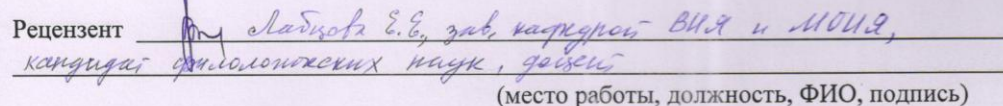 Рецензент Лабцова Е.Е., зав. кафедрой ВИЯ и МОИЯ,
кандидат филологических наук, доцент
(место работы, должность, ФИО, подпись)